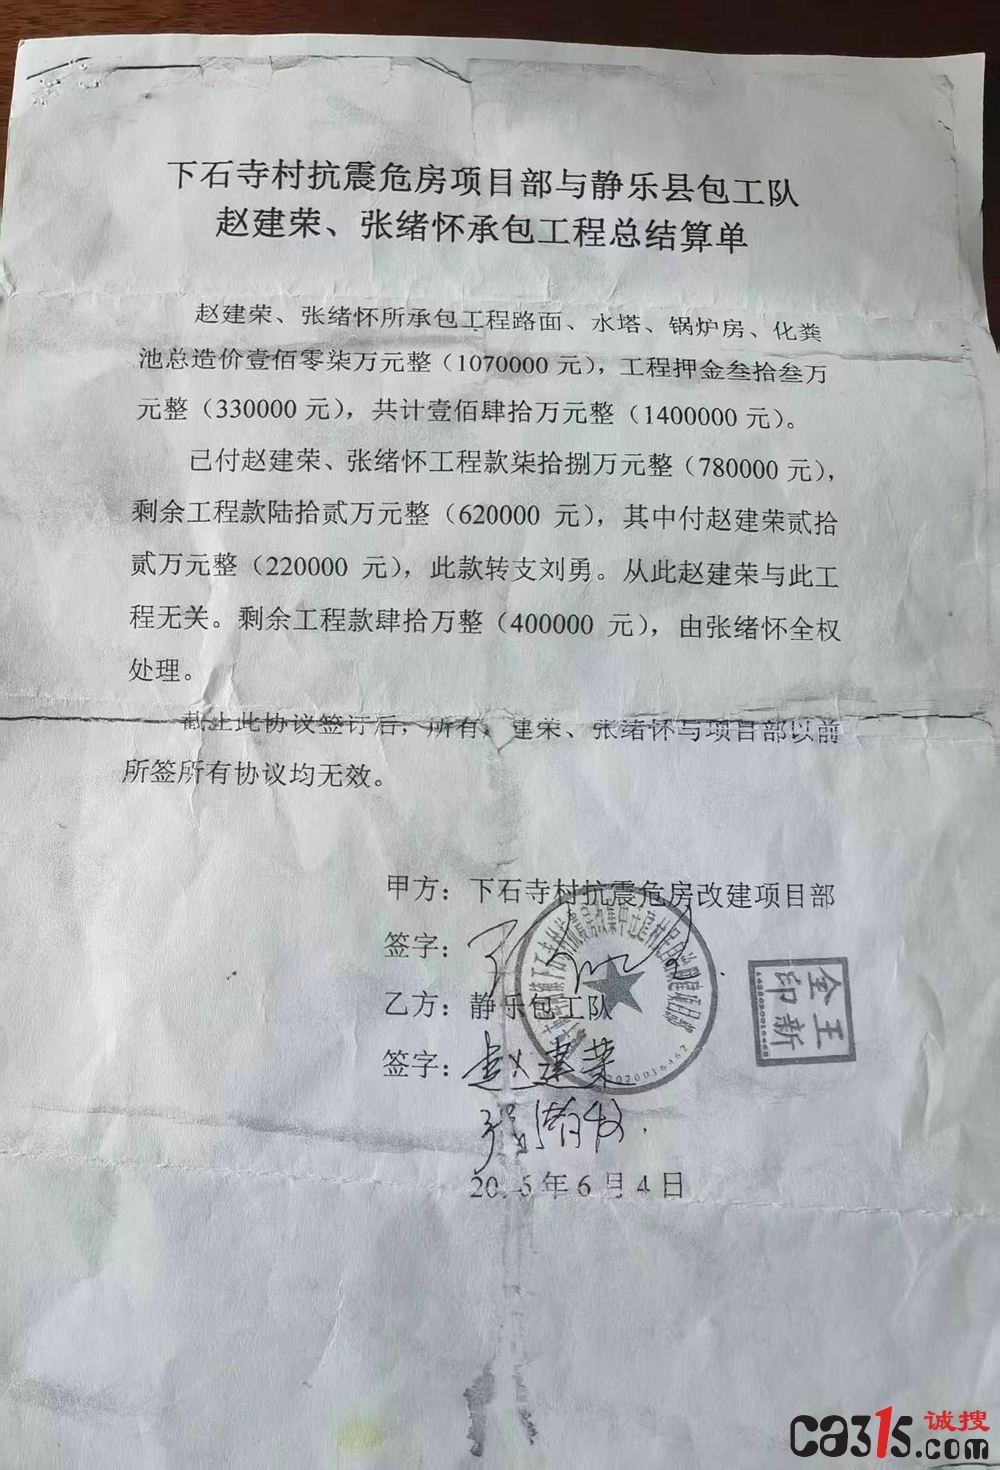 下石寺村抗震危房项目部与静乐县包工队
赵建荣、张绪怀承包工程总结算单
赵建荣、张绪怀所承包工程路面、水塔、锅炉房、化粪
池总造价壹佰零柒万元整（1070000 元），工程押金叁拾叁万
元整（330000 元），共计壹佰肆拾万元整（1400000 元）。
已付赵建荣、张绪怀工程款柒拾捌万元整（780000 元），
剩余工程款陆拾贰万元整（620000 元），其中付赵建荣贰拾
贰万元整（220000 元），此款转支刘勇。从此赵建荣与此工
程无关。剩余工程款肆拾万整（400000 元），由张绪怀全权
处理。
截止此协议签订后，所有 建荣、张绪怀与项目部以前
所签所有协议均无效。
甲方：下石寺村抗震危房改建项目部
签字：
乙方：静乐包工队
签字：赵建荣
张绪怀
20 5 年 6 月 4 日
王新
金印
ca315.com
诚搜